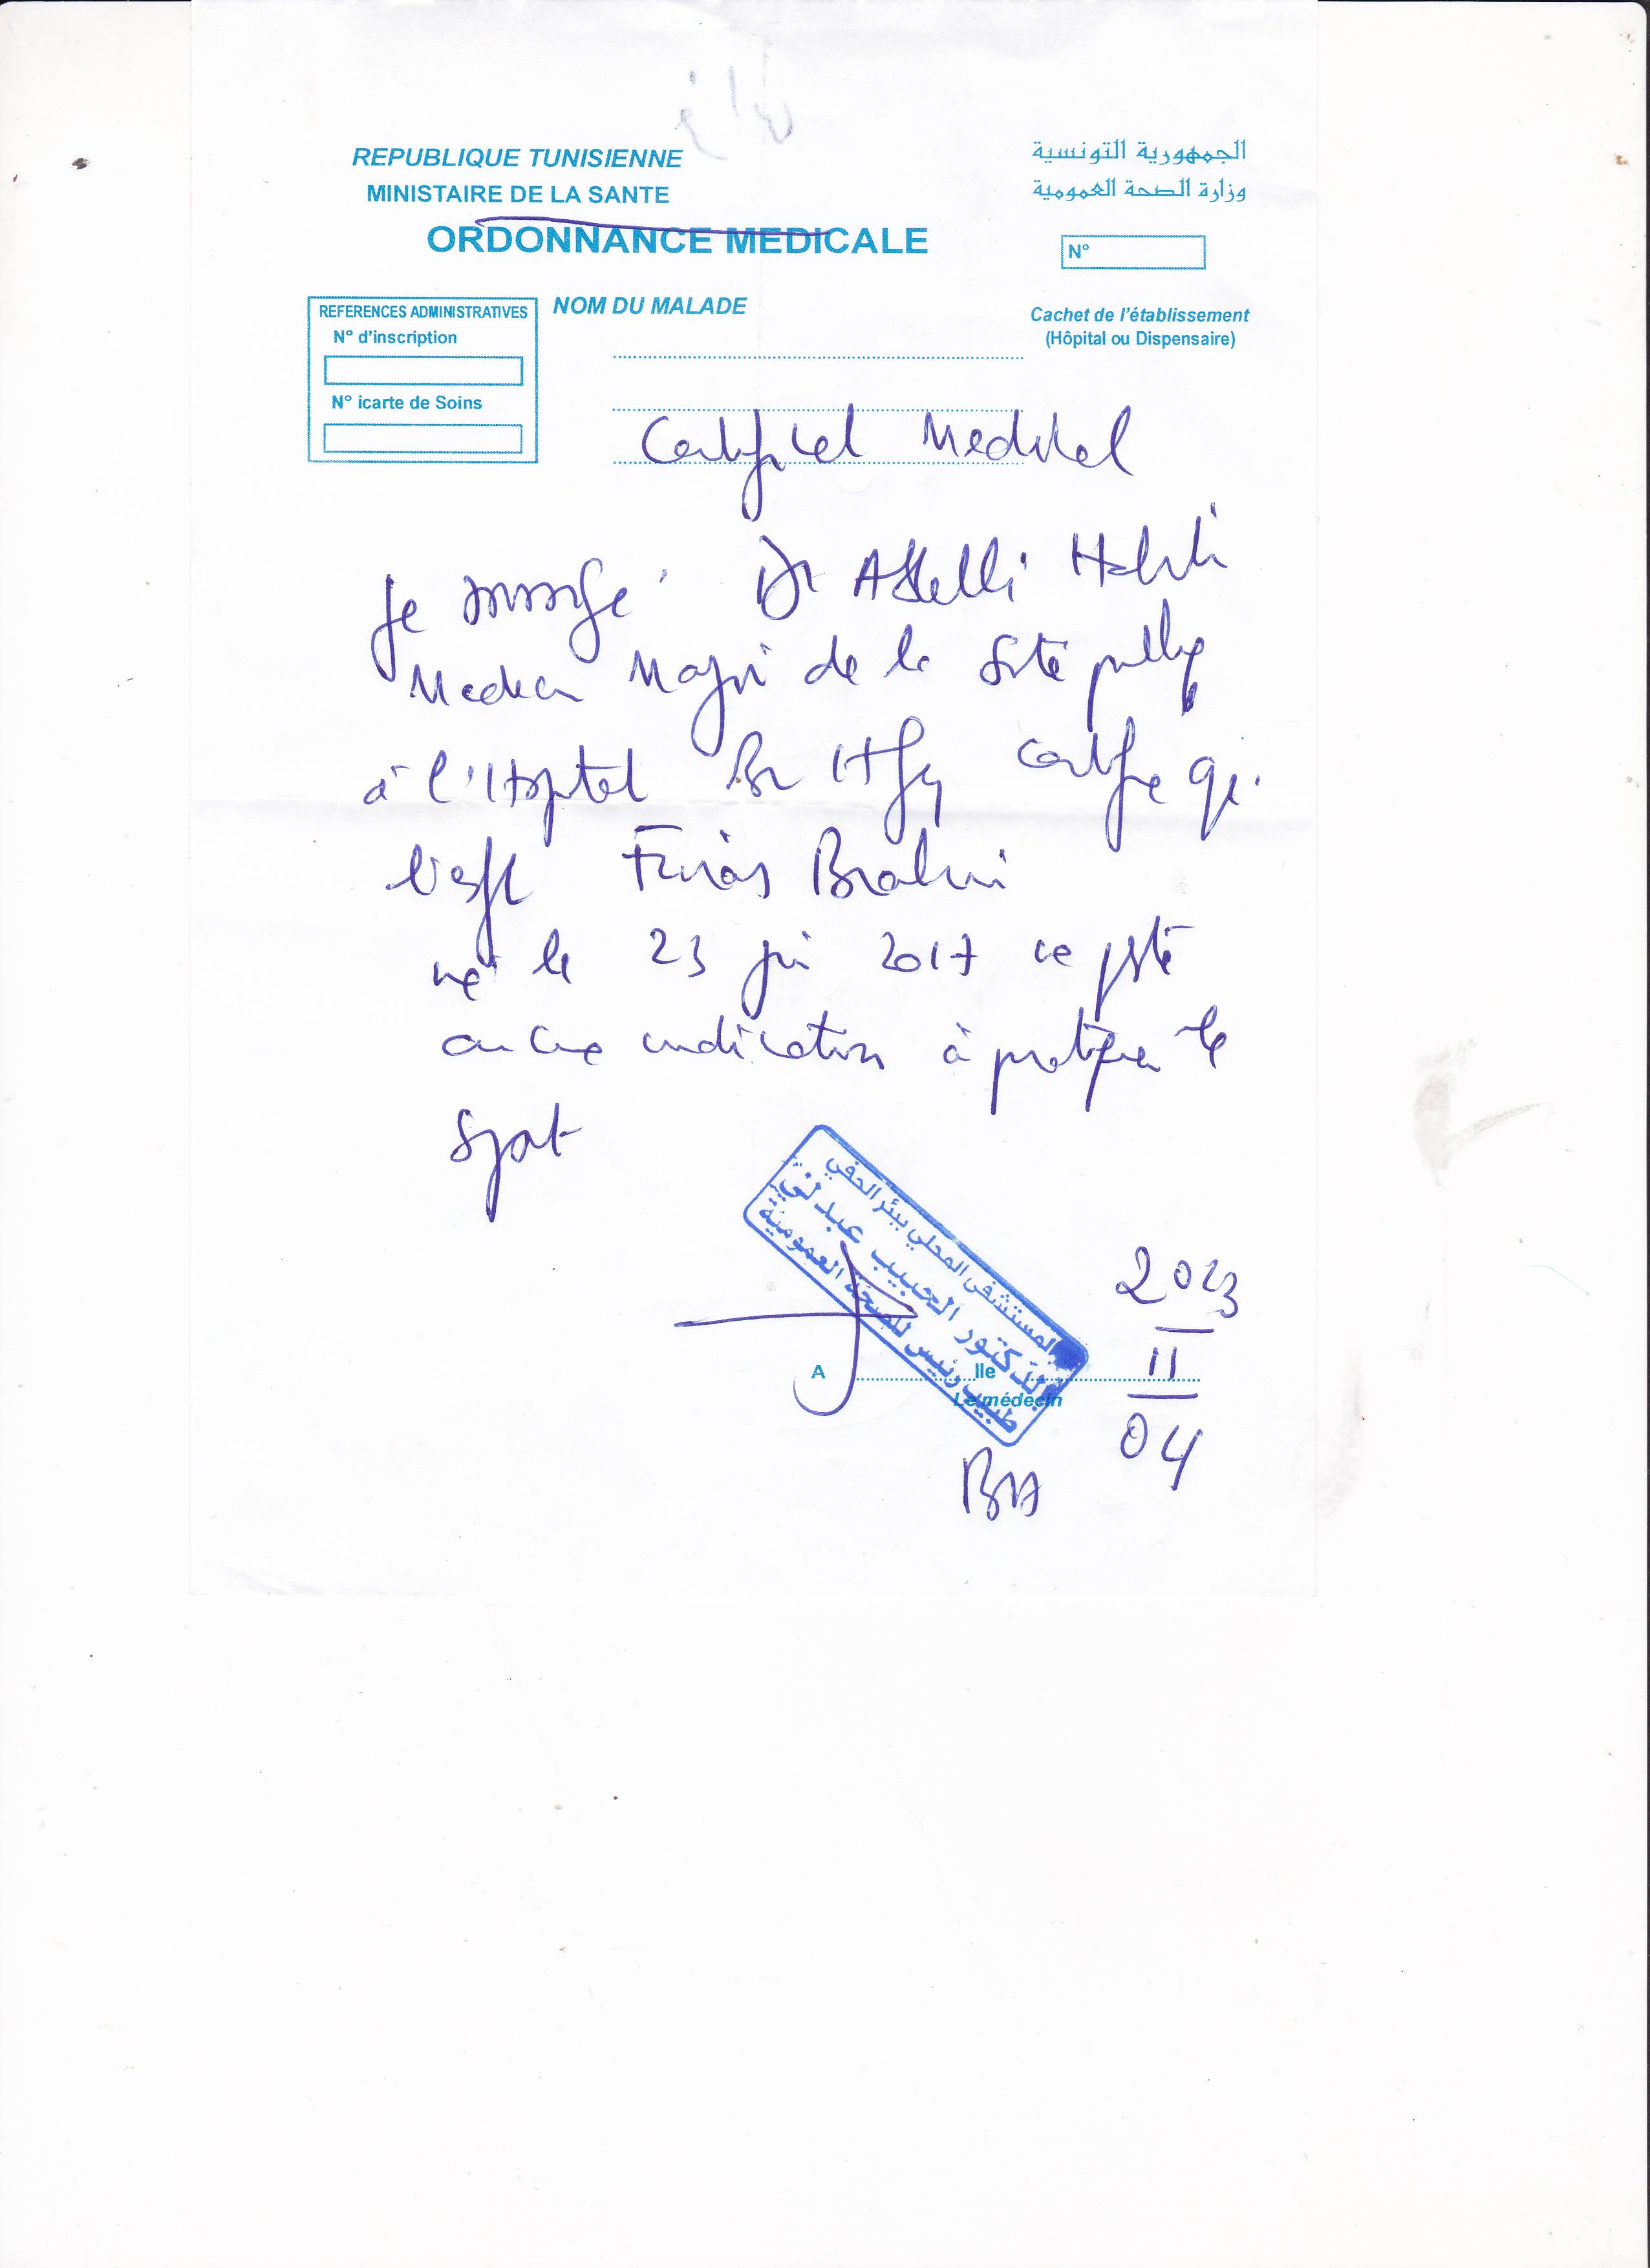 REPUBLIQUE TUNISIENNE
الجمهورية التونسية
MINISTAIRE DE LA SANTE
وزارة الصحة العمومية
ORDONNANCE MEDICALE
N°
REFERENCES ADMINISTRATIVES
N° d'inscription
N° icarte de Soins
NOM DU MALADE
Cachet de l'établissement
(Hôpital ou Dispensaire)
Certificat Medical
Je soussigné Dr
Medecin Major de la Santé publique
à l'Hopital Bir Hfey certifie que
l'enfant Firas Brahmi
né le 23 juin 2017 ne présente
aucune indication à pratiquer le
sport
المستشفى المحلي ببئر الحفي
الدكتور الحبيب عبدلي
طبيب رئيس للصحة العمومية
A lle
Le médecin
2023
11
04
BH